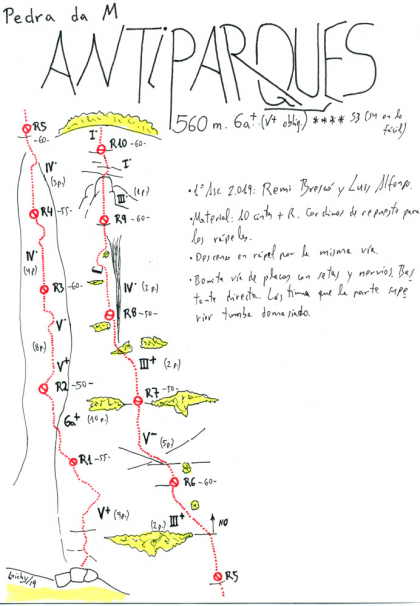 Pedra da M
ANTIPARQUES
560 m. 6a+ (V+ oblig.) **** S3 (S4 en lo
fácil)
• 1ª Asc. 2.019: Remi Brescó y Luis Alfonso.
• Material: 10 cints + R. Cordinos de repuesto para
los rápeles.
• Descenso en rápel por la misma vía.
• Bonita vía de placas con setas y nervios. Bas
tante directa. Lástima que la parte supe
rior tumba demasiado.
R5
-60-
IV·
(3p.)
R4 -55-
IV·
(4p)
R3 -60-
V·
(8p.)
V+
R2 -50-
6a+
(10p.)
R1 -55-
V+ (9p.)
I·
R10 -60-
I·
III (1p.)
R9 -60-
IV· (2p.)
R8 -50-
III+ (2p.)
R7 -50-
V-
(5p.)
R6 -60-
III+
(2p.)
NO
R5